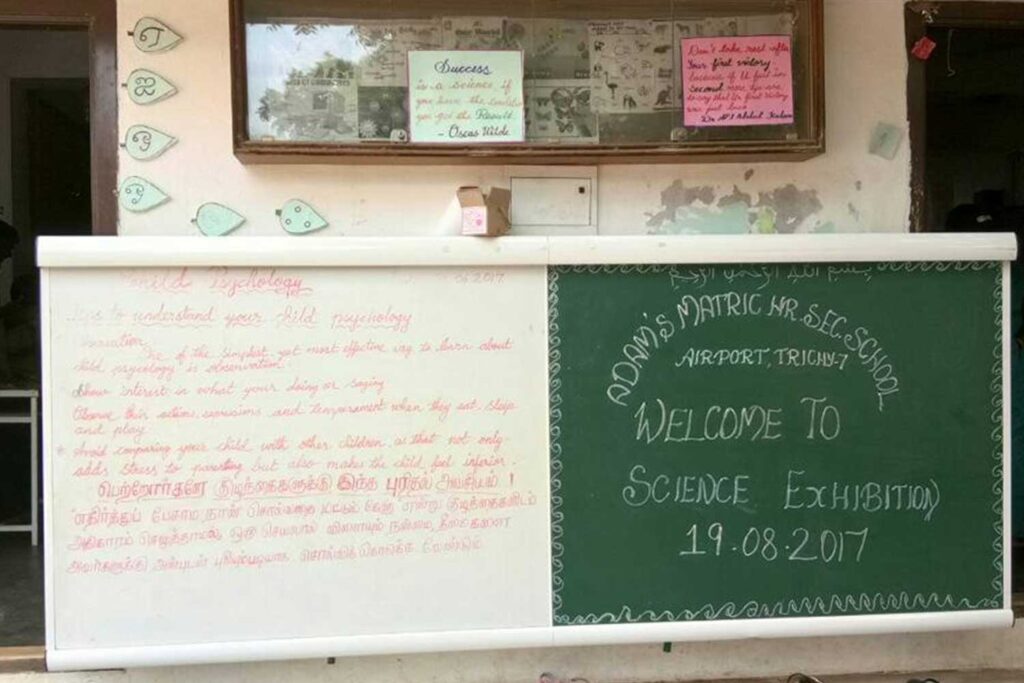 Success
is a science if
you have the
you get the Result
- Oscar Wilde
Don't take rest after
Your first victory
because if U fail in
second
first victory
was just luck
Child Psychology
2017
Tips to understand your child psychology
One of the simplest yet most effective way to learn about
child psycology is observation.
Show interest in what your doing or saying
Observe their and temperament when they eat, sleep
and play
* Avoid comparing your child with other children as that not only
adds stress to parenting but also makes the child feel inferior.
பெற்றோர்களே குழந்தைகளுக்கு இந்த புரிதல் அவசியம் !
எதிர்த்துப் பேசாமல் நான் சொல்வதை மட்டும் கேளு என்று குழந்தைகளிடம்
அதிகாரம் செலுத்தாமல், ஒரு செயலால் விளையும் நன்மை, தீமைகளை
அவர்களுக்கு அன்புடன் சொல்லிக் கொடுக்க வேண்டும்
بسم الله الرحمن الرحيم
ADAM'S MATRIC HR.SEC.SCHOOL
AIRPORT, TRICHY-7
WELCOME TO
SCIENCE EXHIBITION
19.08.2017